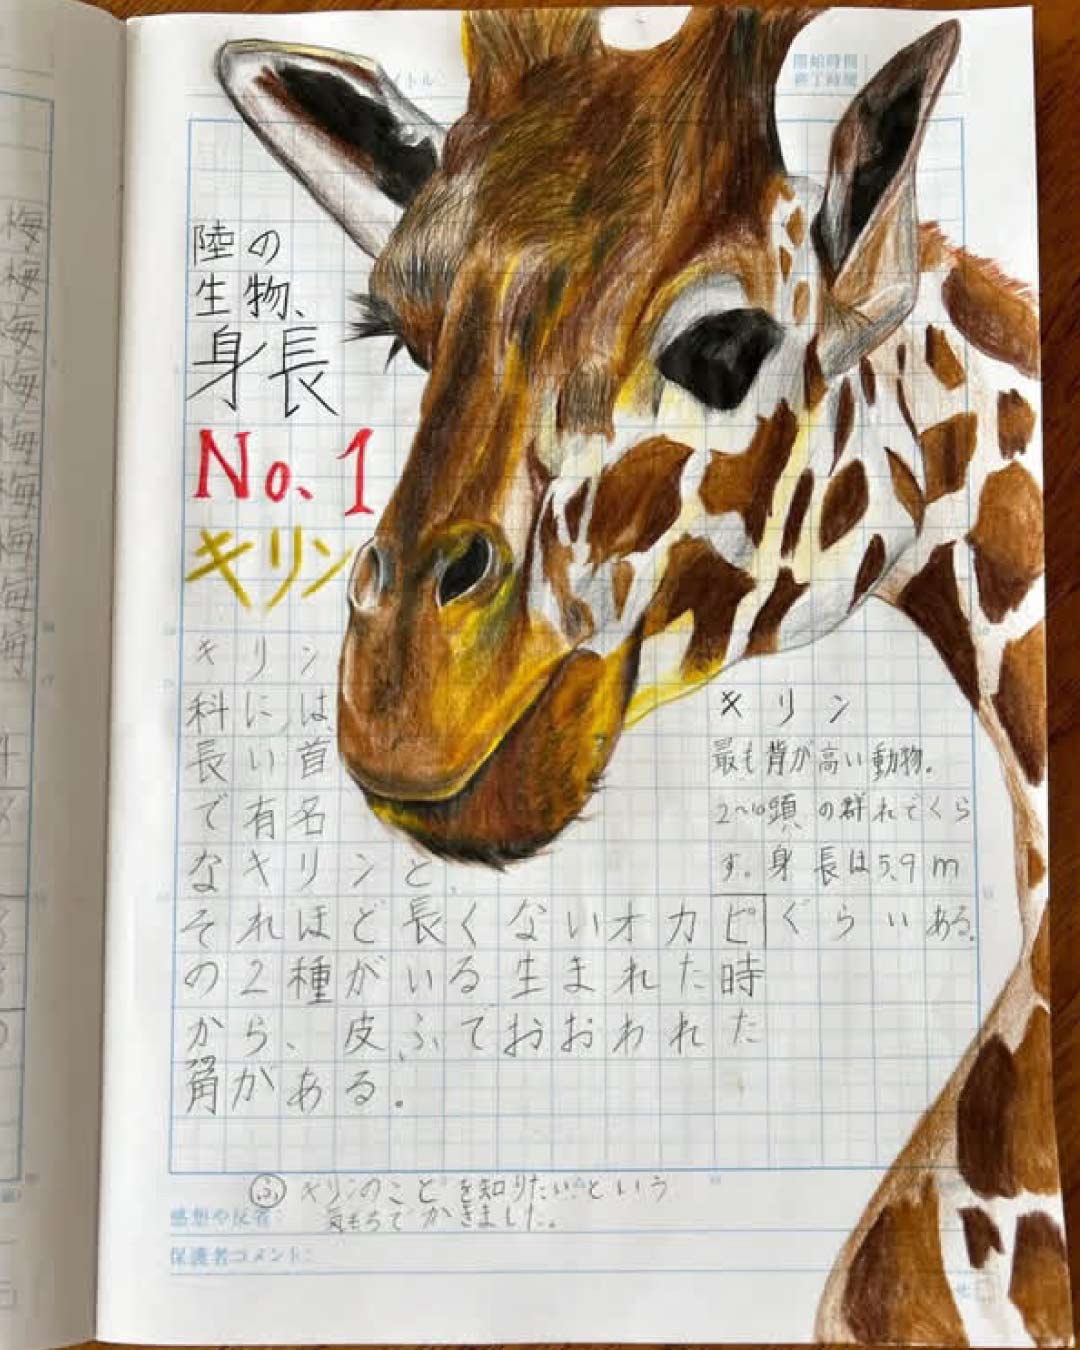 イトル:
開始時間
終了時間
陸の
生物、
身長
No.1
キリン
キリン
科には、
長い首
で有名
なキリンと、
それほど長くないオカピ
の2種がいる生まれた時
から、皮ふでおおわれた
角がある。
キリン
最も背が高い動物。
2〜10頭の群れでくら
す。身長は5.9m
ぐらいある。
ふ キリンのことを知りたいという
気もちでかきました。
感想や反省:
保護者コメント: